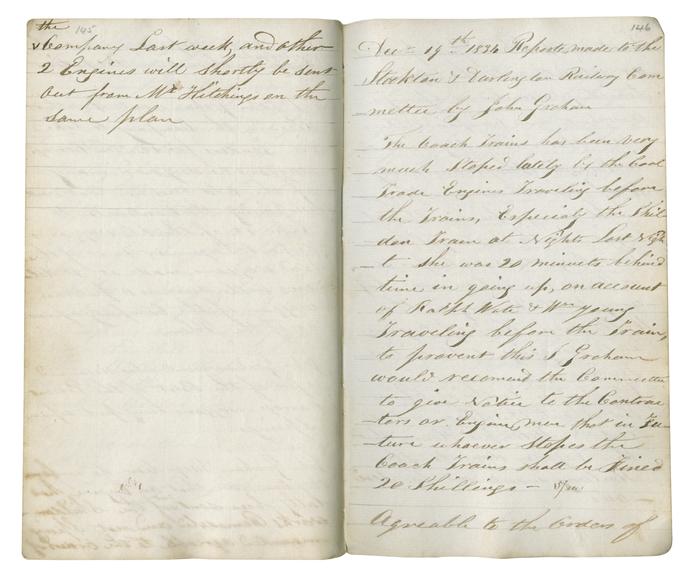 the 145
Company Last week, and other
2 Engines will Shortly be sent
out from Mr Hitchings on the
same plan
146
Decr 19th 1834 Reports made to the
Stockton & Darlington Railway Com
mettee by John Graham
The Coach Trains has been very
much Stoped lately by the Coal
Trade Engines Traveling before
the Trains, Especialy the Shil-
don Train at Nights Last Nigh
-t She was 20 minuets behind
time in going up, on account
of Ralph & Wm young
Traveling before the Train,
to prevent this J Graham
would recomend the Committee
to give Notice to the Contrac
-tors or Engine men that in Fu-
-ture whoever Stopes the
Coach Trains shall be Fined
20 Shillings -
Agreable to the Orders of